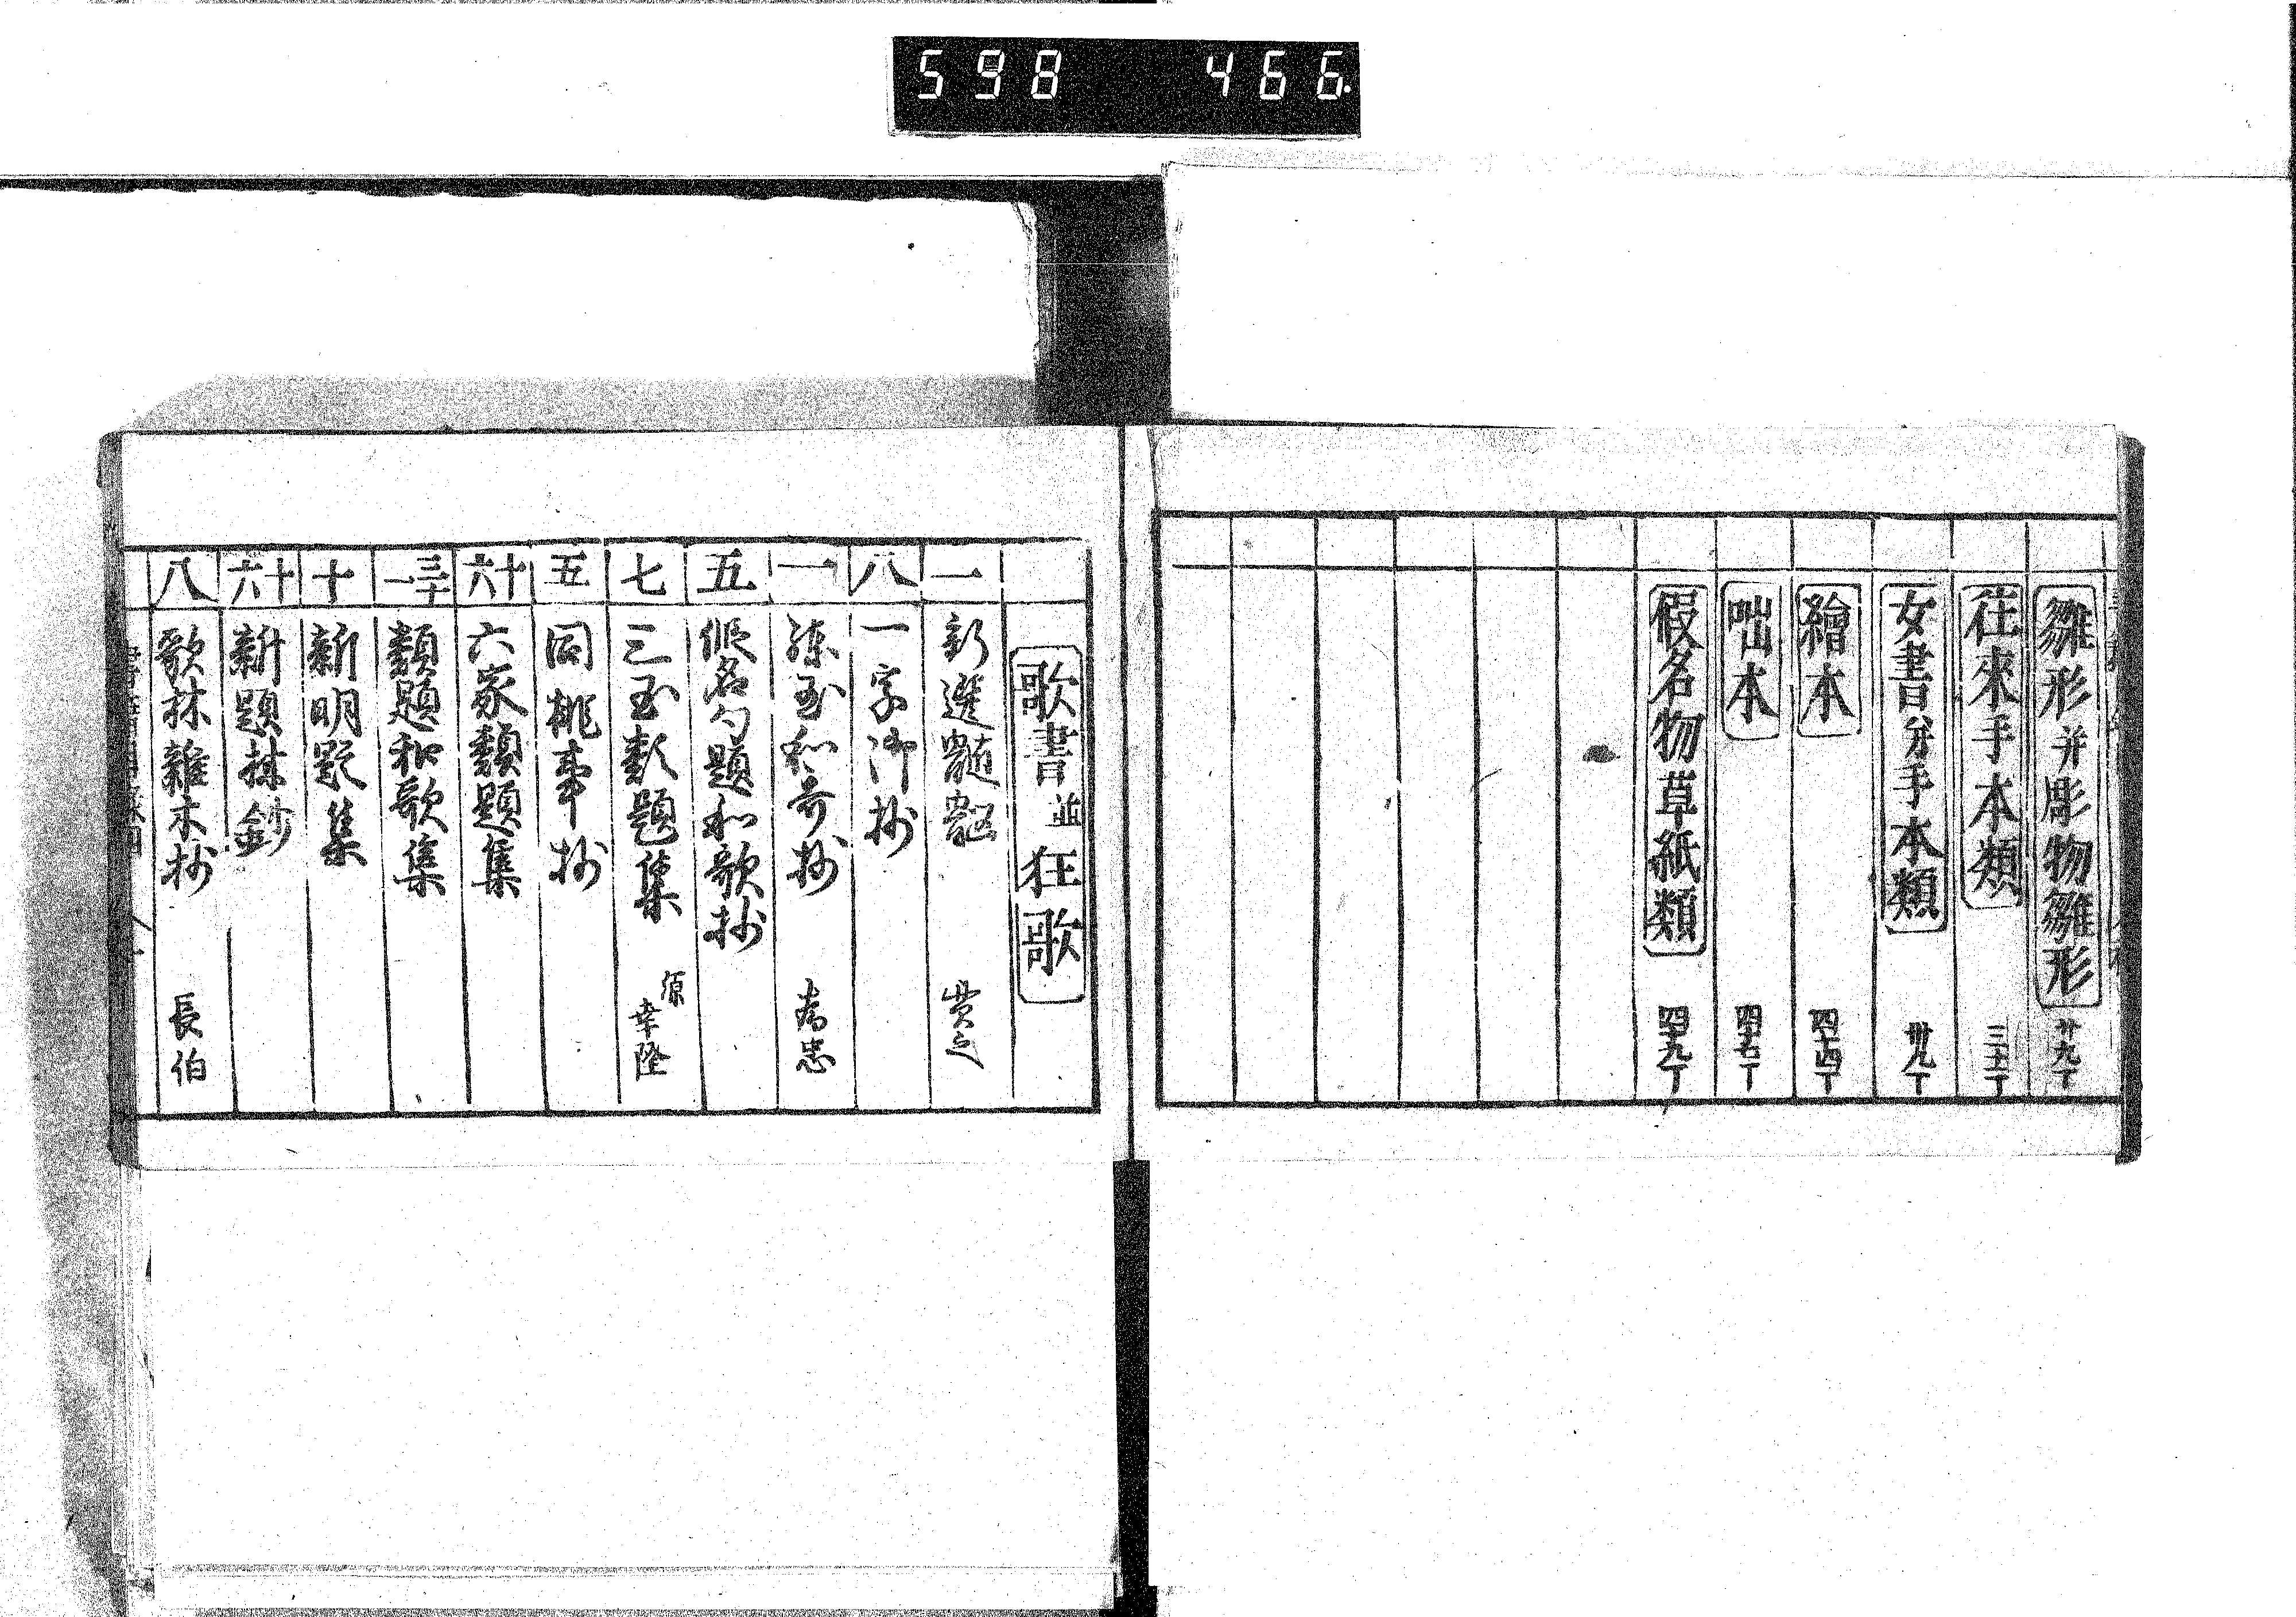 598 466
雛形并彫物雛形 廿九丁
往來手本類 三十二丁
女書并手本類 卅九丁
繪本 四十四丁
咄本 四十七丁
假名物草紙類 四十九丁
歌書並狂歌
一 新選髓腦 貫之
八 一字御抄
一 練玉和哥抄 為忠
五 假名句題和歌抄
七 三玉類題集 源幸隆
五 同機事抄
十六 六家類題集
三十一 類題和歌集
十 新明題集
十六 新題林鈔
八 歌林雜木抄 長伯